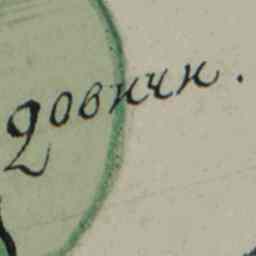 довичи.